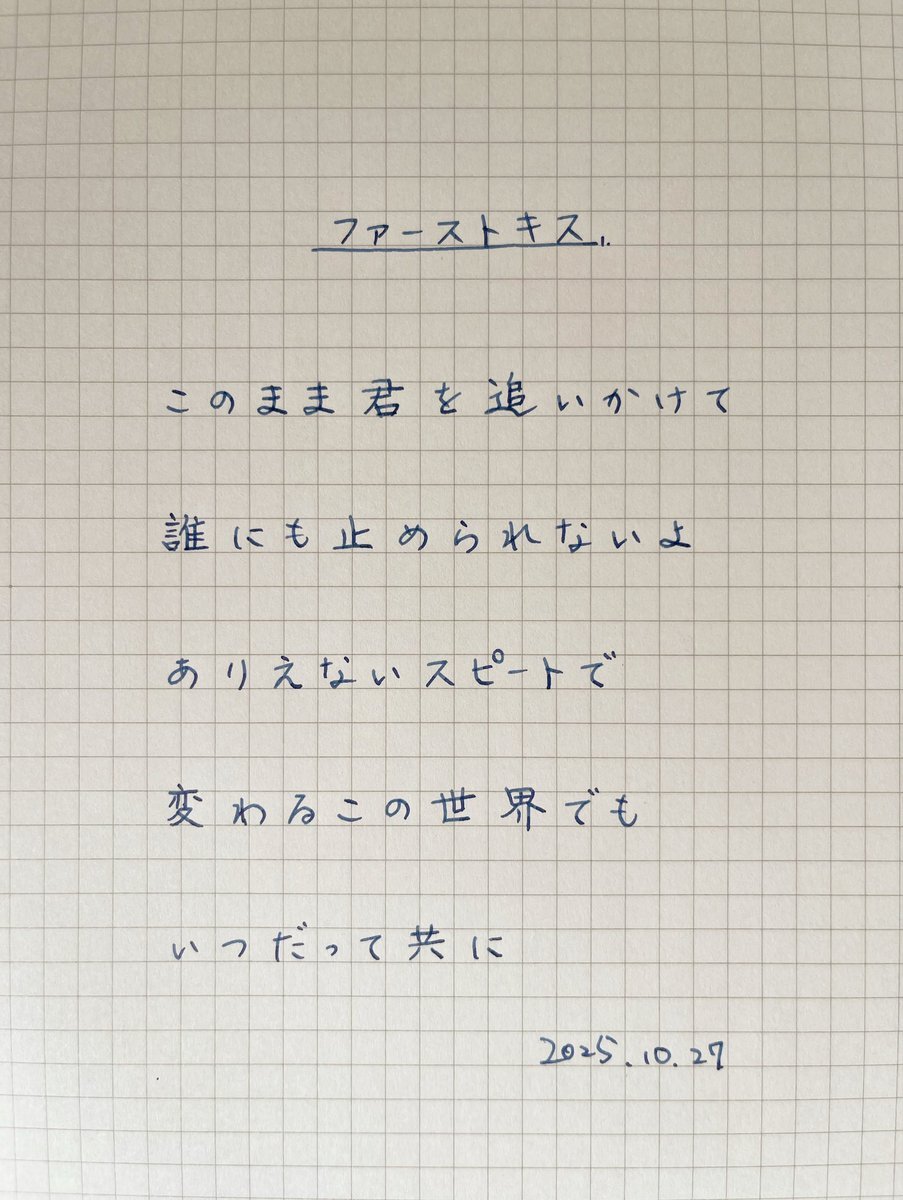 ファーストキス
このまま君を追いかけて
誰にも止められないよ
ありえないスピートで
変わるこの世界でも
いつだって共に
2025.10.27